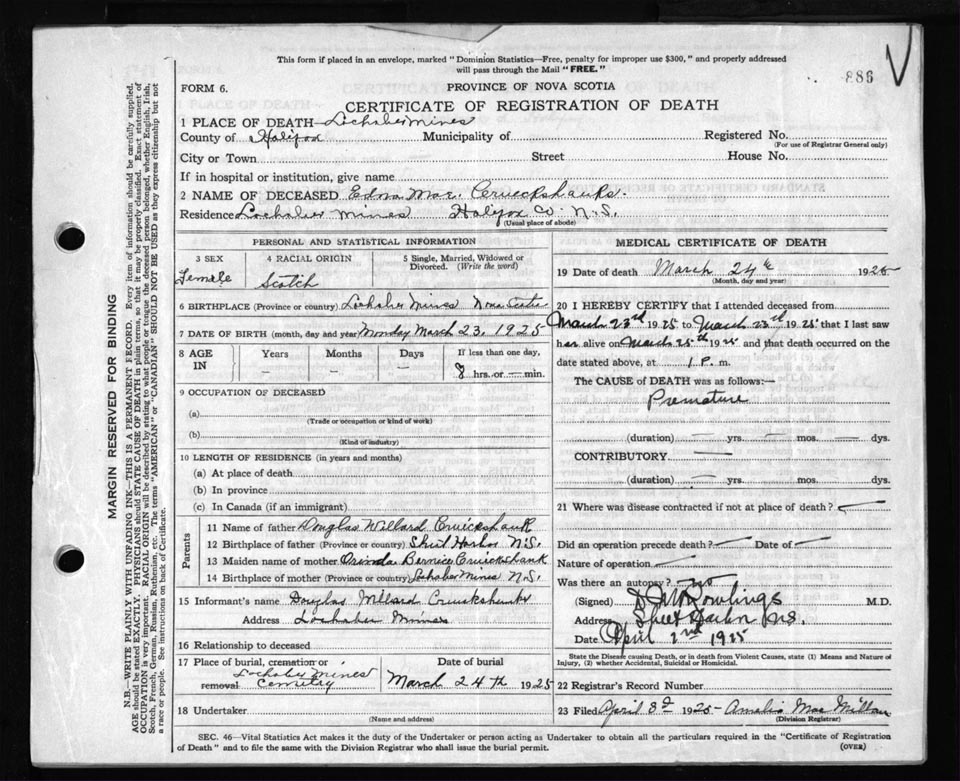 This form if placed in an envelope, marked "Dominion Statistics—Free, penalty for improper use $300," and properly addressed
will pass through the Mail "FREE."
886
FORM 6.
PROVINCE OF NOVA SCOTIA
CERTIFICATE OF REGISTRATION OF DEATH
1 PLACE OF DEATH—Lochaber Mines
County of Halifax Municipality of Registered No.
(For use of Registrar General only)
City or Town Street House No.
If in hospital or institution, give name
2 NAME OF DECEASED Edna Mae. Cruickshanks.
Residence Lochaber Mines Halifax Co. N.S.
(Usual place of abode)
PERSONAL AND STATISTICAL INFORMATION
3 SEX 4 RACIAL ORIGIN 5 Single, Married, Widowed or
Divorced. (Write the word)
Female Scotch
6 BIRTHPLACE (Province or country) Lochaber Mines Nova Scotia
7 DATE OF BIRTH (month, day and year) Monday March 23. 1925
8 AGE IN Years Months Days If less than one day,
— — — 8 hrs. or — min.
9 OCCUPATION OF DECEASED
(a)
(Trade or occupation or kind of work)
(b)
(Kind of industry)
10 LENGTH OF RESIDENCE (in years and months)
(a) At place of death
(b) In province
(c) In Canada (if an immigrant)
Parents
11 Name of father Douglas Willard Cruickshank
12 Birthplace of father (Province or country) Sheet Harbor N.S.
13 Maiden name of mother Orinda Bernice Cruickshank
14 Birthplace of mother (Province or country) Lochaber Mines N.S.
15 Informant's name Douglas Willard Cruickshanks
Address Lochaber Mines
16 Relationship to deceased
17 Place of burial, cremation or removal Date of burial
Lochaber Mines
Cemetry March 24th 1925
18 Undertaker
(Name and address)
MEDICAL CERTIFICATE OF DEATH
19 Date of death March 24th 1925
(Month, day and year)
20 I HEREBY CERTIFY that I attended deceased from
March 23rd 1925 to March 23rd 1925 that I last saw
her alive on March 25th 1925 and that death occurred on the
date stated above, at 1 P. m.
The CAUSE OF DEATH was as follows:—
Premature
(duration) — yrs. — mos. — dys.
CONTRIBUTORY —
(duration) — yrs. — mos. — dys.
21 Where was disease contracted if not at place of death? —
Did an operation precede death? — Date of —
Nature of operation —
Was there an autopsy? no
(Signed) Rowlings M.D.
Address Sheet Harbor N.S.
Date April 2nd 1925
State the Disease causing Death, or in death from Violent Causes, state (1) Means and Nature of
Injury, (2) whether Accidental, Suicidal or Homicidal.
22 Registrar's Record Number
23 Filed April 3d 1925 Amelia Mac Millan
(Division Registrar)
SEC. 46—Vital Statistics Act makes it the duty of the Undertaker or person acting as Undertaker to obtain all the particulars required in the "Certificate of Registration
of Death" and to file the same with the Division Registrar who shall issue the burial permit.
(OVER)
MARGIN RESERVED FOR BINDING
N.B.—WRITE PLAINLY WITH UNFADING INK—THIS IS A PERMANENT RECORD. Every item of information should be carefully supplied.
AGE should be stated EXACTLY. PHYSICIANS should STATE CAUSE OF DEATH in plain terms, so that it may be properly classified. Exact statement of
OCCUPATION is very important. RACIAL ORIGIN will be described by stating to what people or tongue the deceased person belonged, whether English, Irish,
Scotch, French, German, Russian, Ruthenian, etc. The terms "AMERICAN" or "CANADIAN" SHOULD NOT BE USED as they express citizenship but not
a race or people. See instructions on back of Certificate.